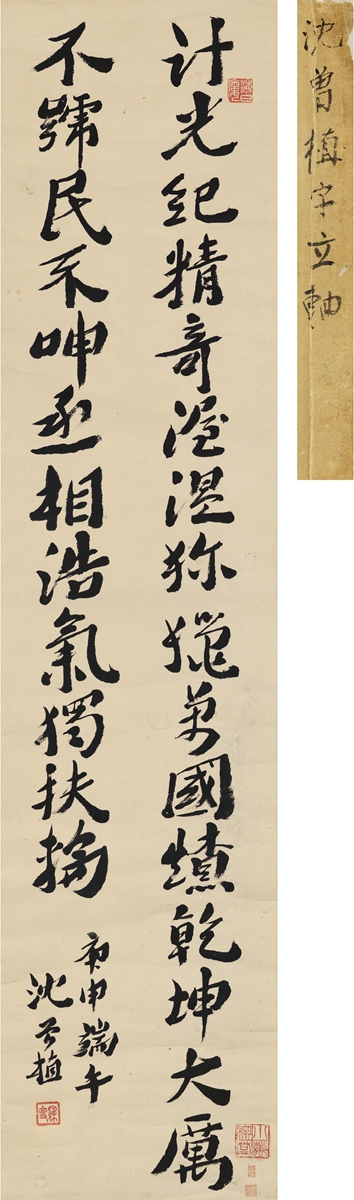 计光紀精奇渥萬國乾坤大厲
不民不呻丞相浩氣獨扶輪
庚申端午
沈曾植
沈曾植字立軸